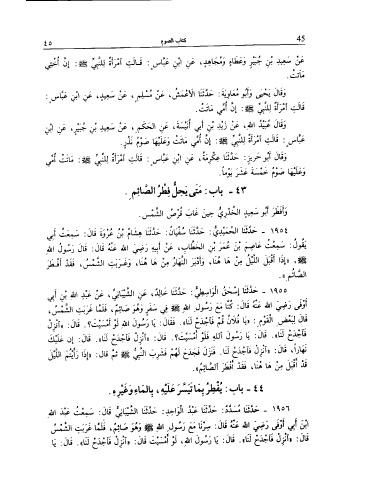 45 كتاب الصوم ٤٥
عَنْ سَعِيدِ بْنِ جُبَيْرٍ وَعَطَاءٍ وَمُجَاهِدٍ، عَنِ ابْنِ عَبَّاسٍ: قَالَتِ امْرَأَةٌ لِلنَّبِيِّ ﷺ: إِنَّ أُخْتِي
مَاتَتْ.
وَقَالَ يَحْيَى وَأَبُو مُعَاوِيَةَ: حَدَّثَنَا الْأَعْمَشُ، عَنْ مُسْلِمٍ، عَنْ سَعِيدٍ، عَنِ ابْنِ عَبَّاسٍ:
قَالَتِ امْرَأَةٌ لِلنَّبِيِّ ﷺ: إِنَّ أُمِّي مَاتَتْ.
وَقَالَ عُبَيْدُ اللهِ، عَنْ زَيْدِ بْنِ أَبِي أُنَيْسَةَ، عَنِ الْحَكَمِ، عَنْ سَعِيدِ بْنِ جُبَيْرٍ، عَنِ ابْنِ
عَبَّاسٍ: قَالَتِ امْرَأَةٌ لِلنَّبِيِّ ﷺ: إِنَّ أُمِّي مَاتَتْ وَعَلَيْهَا صَوْمُ نَذْرٍ.
وَقَالَ أَبُو حَرِيزٍ: حَدَّثَنَا عِكْرِمَةُ، عَنِ ابْنِ عَبَّاسٍ: قَالَتِ امْرَأَةٌ لِلنَّبِيِّ ﷺ: مَاتَتْ أُمِّي
وَعَلَيْهَا صَوْمُ خَمْسَةَ عَشَرَ يَوْماً.
٤٣ - باب: مَتَى يَحِلُّ فِطْرُ الصَّائِمِ.
وَأَفْطَرَ أَبُو سَعِيدٍ الْخُدْرِيُّ حِينَ غَابَ قُرْصُ الشَّمْسِ.
١٩٥٤ - حَدَّثَنَا الْحُمَيْدِيُّ: حَدَّثَنَا سُفْيَانُ: حَدَّثَنَا هِشَامُ بْنُ عُرْوَةَ قَالَ: سَمِعْتُ أَبِي
يَقُولُ: سَمِعْتُ عَاصِمَ بْنَ عُمَرَ بْنِ الْخَطَّابِ، عَنْ أَبِيهِ رَضِيَ اللهُ عَنْهُ قَالَ: قَالَ رَسُولُ اللهِ
ﷺ: «إِذَا أَقْبَلَ اللَّيْلُ مِنْ هَا هُنَا، وَأَدْبَرَ النَّهَارُ مِنْ هَا هُنَا، وَغَرَبَتِ الشَّمْسُ، فَقَدْ أَفْطَرَ
الصَّائِمُ».
١٩٥٥ - حَدَّثَنَا إِسْحٰقُ الْوَاسِطِيُّ: حَدَّثَنَا خَالِدٌ، عَنِ الشَّيْبَانِيِّ، عَنْ عَبْدِ اللهِ بْنِ أَبِي
أَوْفَى رَضِيَ اللهُ عَنْهُ قَالَ: كُنَّا مَعَ رَسُولِ اللهِ ﷺ فِي سَفَرٍ وَهُوَ صَائِمٌ، فَلَمَّا غَرَبَتِ الشَّمْسُ،
قَالَ لِبَعْضِ الْقَوْمِ: «يَا فُلَانُ قُمْ فَاجْدَحْ لَنَا». فَقَالَ: يَا رَسُولَ اللهِ لَوْ أَمْسَيْتَ؟. قَالَ: «انْزِلْ
فَاجْدَحْ لَنَا». قَالَ: يَا رَسُولَ اللهِ فَلَوْ أَمْسَيْتَ؟. قَالَ: «انْزِلْ فَاجْدَحْ لَنَا». قَالَ: إِنَّ عَلَيْكَ
نَهَاراً، قَالَ: «انْزِلْ فَاجْدَحْ لَنَا». فَنَزَلَ فَجَدَحَ لَهُمْ فَشَرِبَ النَّبِيُّ ﷺ ثُمَّ قَالَ: «إِذَا رَأَيْتُمُ اللَّيْلَ
قَدْ أَقْبَلَ مِنْ هَا هُنَا، فَقَدْ أَفْطَرَ الصَّائِمُ».
٤٤ - باب: يُفْطِرُ بِمَا تَيَسَّرَ عَلَيْهِ، بِالْمَاءِ وَغَيْرِهِ.
١٩٥٦ - حَدَّثَنَا مُسَدَّدٌ: حَدَّثَنَا عَبْدُ الْوَاحِدِ: حَدَّثَنَا الشَّيْبَانِيُّ قَالَ: سَمِعْتُ عَبْدَ اللهِ
بْنَ أَبِي أَوْفَى رَضِيَ اللهُ عَنْهُ قَالَ: سِرْنَا مَعَ رَسُولِ اللهِ ﷺ وَهُوَ صَائِمٌ، فَلَمَّا غَرَبَتِ الشَّمْسُ
قَالَ: «انْزِلْ فَاجْدَحْ لَنَا». قَالَ: يَا رَسُولَ اللهِ، لَوْ أَمْسَيْتَ قَالَ: «انْزِلْ فَاجْدَحْ لَنَا». قَالَ: يَا